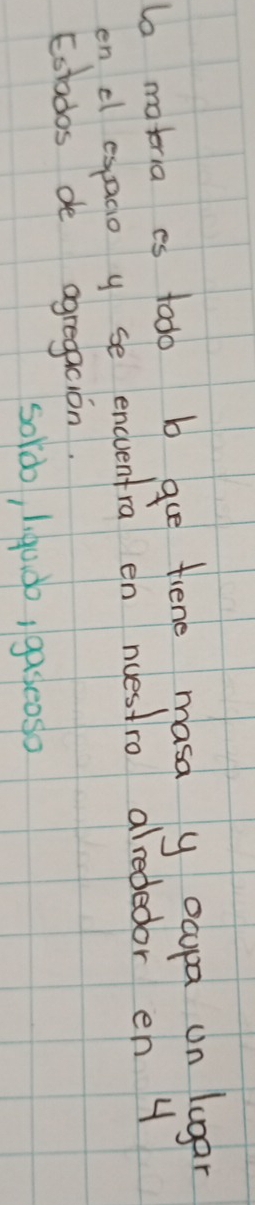 la materia es todo lo que tiene masa y ocupa un lugar
en el espacio y se encuentra en nuestro alrededor en 4
Estados de agregación.
solído, liquido, gaseoso